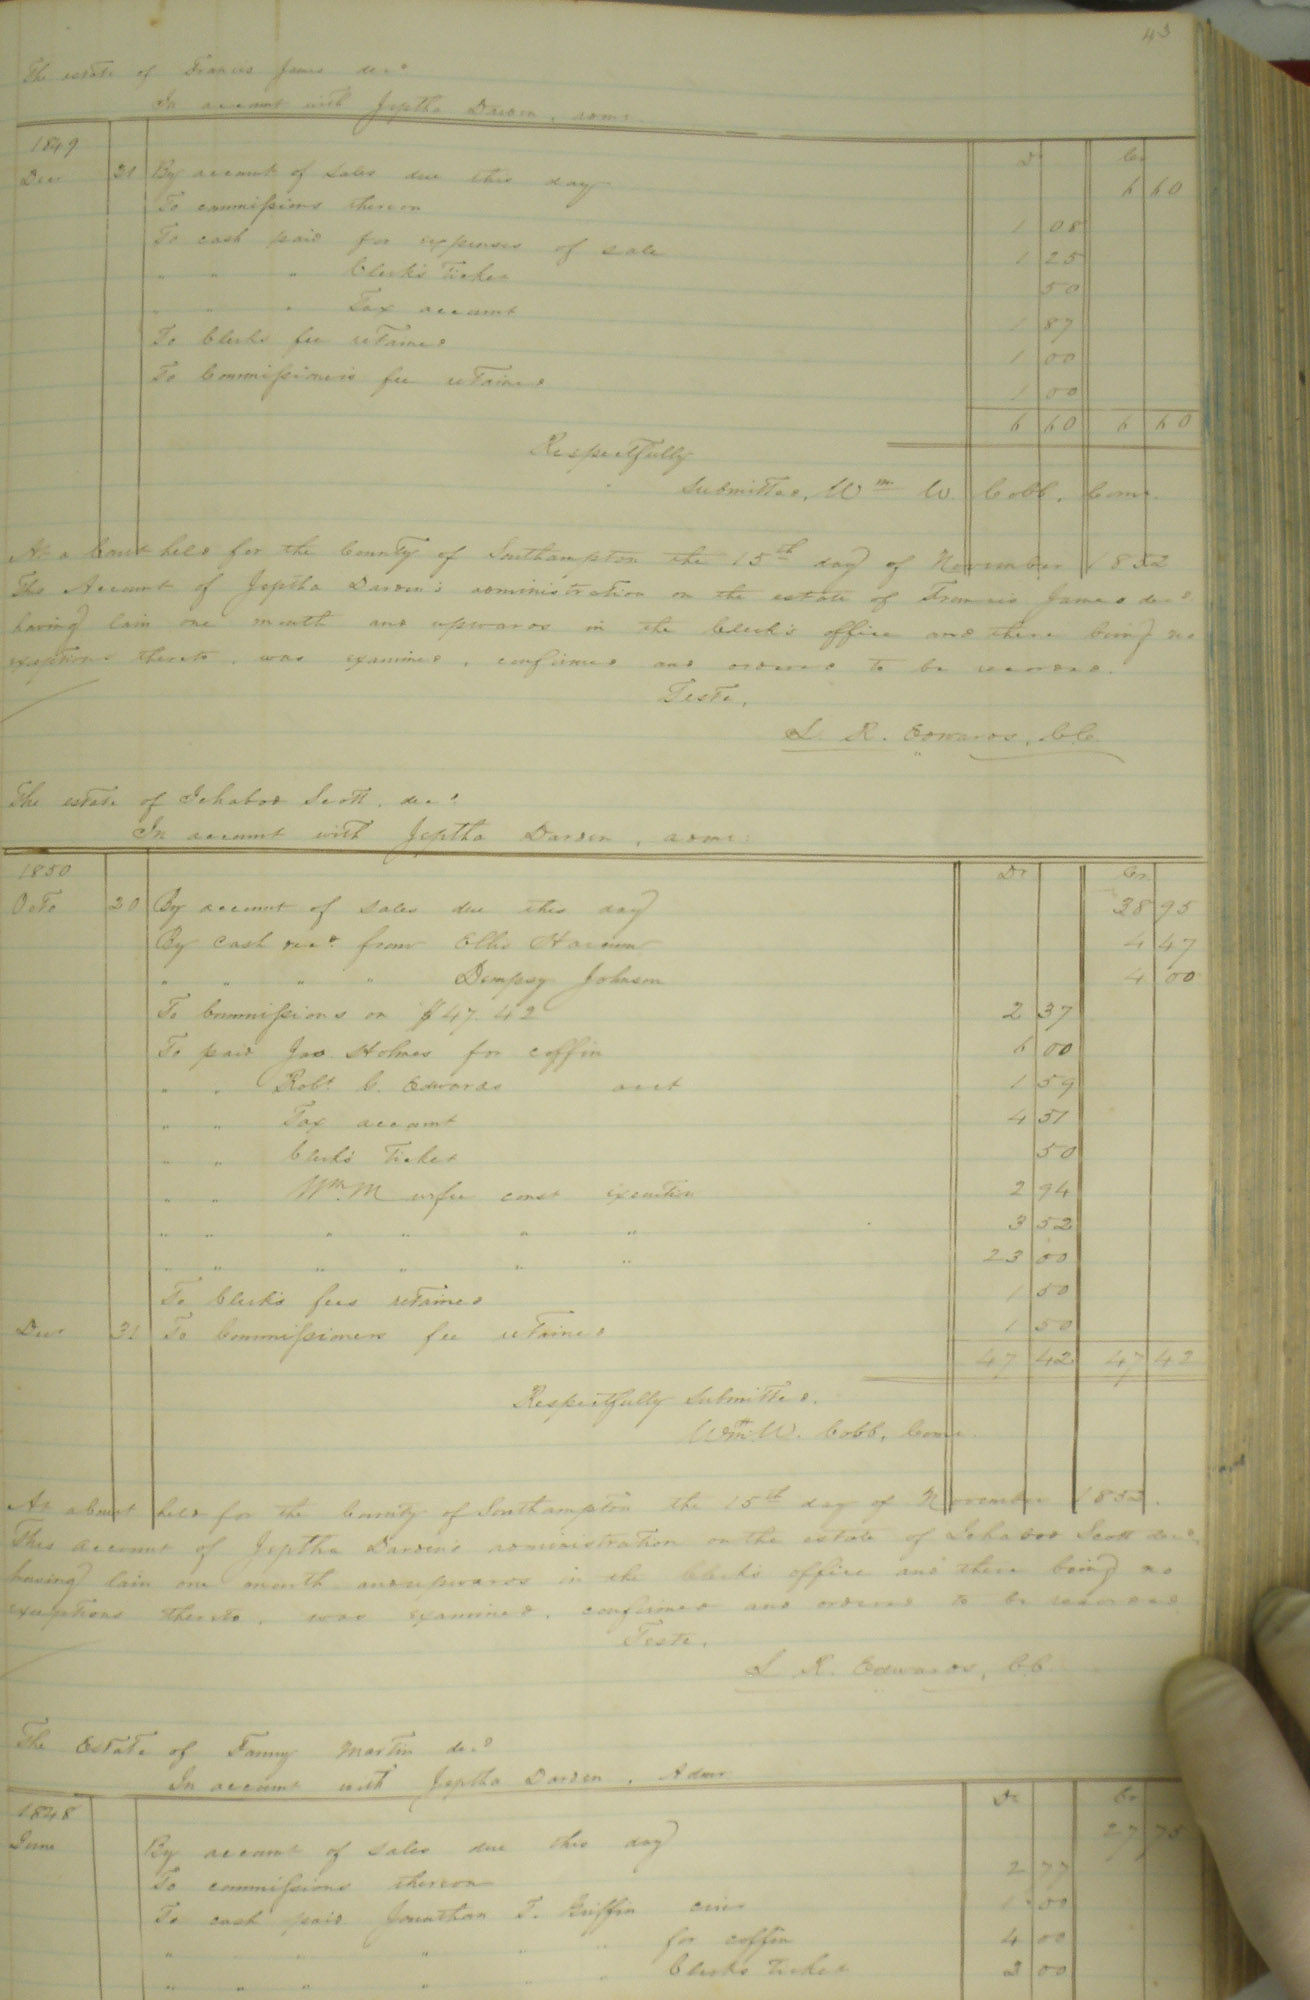 43
The estate of Francis James decd
In account with Jeptha Darden, admr.
Dr Cr
1849
Decr 31 By account of sales due this day 6 60
To commissions thereon 1 08
To cash paid for expenses of sale 1 25
" " " Clerk's Ticket 50
" " " Tax account 1 87
To Clerks fee retained 1 00
To Commissioner's fee retained 1 00
6 60 6 60
Respectfully
Submitted, Wm W. Cobb, Comr.
At a Court held for the County of Southampton the 15th day of November 1852
The Account of Jeptha Darden's administration on the estate of Francis James decd
having lain one month and upwards in the Clerk's office and there being no
exceptions thereto, was examined, confirmed and ordered to be recorded.
Teste,
L. R. Edwards, C.C.
The estate of Ichabod Scott, decd.
In account with Jeptha Darden, admr.
1850 Dr Cr
Octo 20 By account of sales due this day 38 95
By cash recd. from Ellis 4 47
" " " " Dempsy Johnson 4 00
To Commissions on $47.42 2 37
To paid Jas. Holmes for coffin 6 00
" " Robt. C. Edwards acct 1 59
" " Tax account 4 51
" " Clerk's Ticket 50
" " Wm. M const execution 2 94
" " " " " " 3 52
" " " " " " 23 00
To Clerk's fees retained 1 50
Decr 31 To Commissioners fee retained 1 50
47 42 47 42
Respectfully submitted.
Wm W. Cobb, Comr.
At a Court held for the County of Southampton the 15th day of November 1852.
This account of Jeptha Darden's administration on the estate of Ichabod Scott decd.
having lain one month and upwards in the Clerk's office and there being no
exceptions thereto, was examined, confirmed and ordered to be recorded
Teste,
L R. Edwards, C.C.
The Estate of Fanny Martin decd
In account with Jeptha Darden, Admr
1848 Dr Cr
June By account of sales due this day 27 75
To commissions thereon 2 77
To cash paid Jonathan T. Griffin crier 1 00
" " " " " for coffin 4 00
" " " " " Clerks ticket 3 00